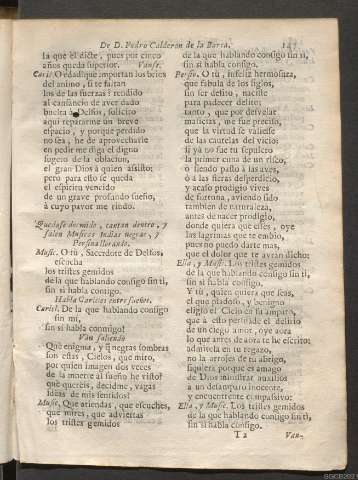 De D. Pedro Calderon de la Barca.
la que èl dicte, pues por cinco
años queda superior. Vanse.
Caric. O edad! que importan los brios
del animo, si te faltan
los de las fuerzas? rendido
al cansancio de aver dado
buelta à Delfos, solicito
aqui repararme un breve
espacio, y porque perdido
no sea, he de aprovecharle
en pedir me diga el digno
sugeto de la oblacion,
el gran Dios à quien asisto;
pero para esto se queda
el espiritu vencido
de un grave profundo sueño,
à cuyo pavor me rindo.
Quedase dormido, cantan dentro, y
salen Musicos Indias negras, y
Persina llorando.
Music. O tù, Sacerdote de Delfos,
escucha
los tristes gemidos
de la que hablando consigo sin ti,
sin si habla consigo.
Habla Caricles entre sueños.
Caricl. De la que hablando consigo
sin mi,
sin si habla conmigo?
Van saliendo
Què enigma, y què negras sombras
son estas, Cielos, que miro,
por quien imagen dos veces
de la muerte al sueño he visto?
què quereis, decidme, vagas
ideas de mis sentidos?
Music. Que atiendas, que escuches,
que mires, que adviertas
los tristes gemidos
de la que hablando consigo sin ti,
sin si habla consigo.
Persin. O tù, infeliz hermosura,
que fabula de los siglos,
sin ser delito, naciste
para padecer delito;
tanto, que por desvelar
malicias, me fue preciso,
que la virtud se valiesse
de las cautelas del vicio:
si yà no fue tu sepulcro
la primer cuna de un risco,
ò siendo pasto à las aves,
ò à las fieras desperdicio,
y acaso prodigio vives
de fortuna, aviendo sido
tambien de naturaleza,
antes de nacer prodigio,
donde quiera que estès, oye
las lagrimas que te embio,
pues no puedo darte mas,
que el dolor que te avràn dicho:
Ella, y Music. Los tristes gemidos
de la que hablando consigo sin ti,
sin si habla consigo.
Y tù, quien quiera que seas,
el que piadoso, y benigno
eligiò el Cielo en su amparo,
que à esto persuade el delirio
de un ciego amor, oye aora
lo que antes de aora te he escrito:
admitela en tu regazo,
no la arrojes de tu abrigo,
siquiera porque es amago
de Dios ministrar auxilios
à un desamparo inocente,
y encuentreme compassivo:
Ella, y Music. Los tristes gemidos
de la que hablando consigo sin ti,
sin si habla consigo.
T 2 Van-